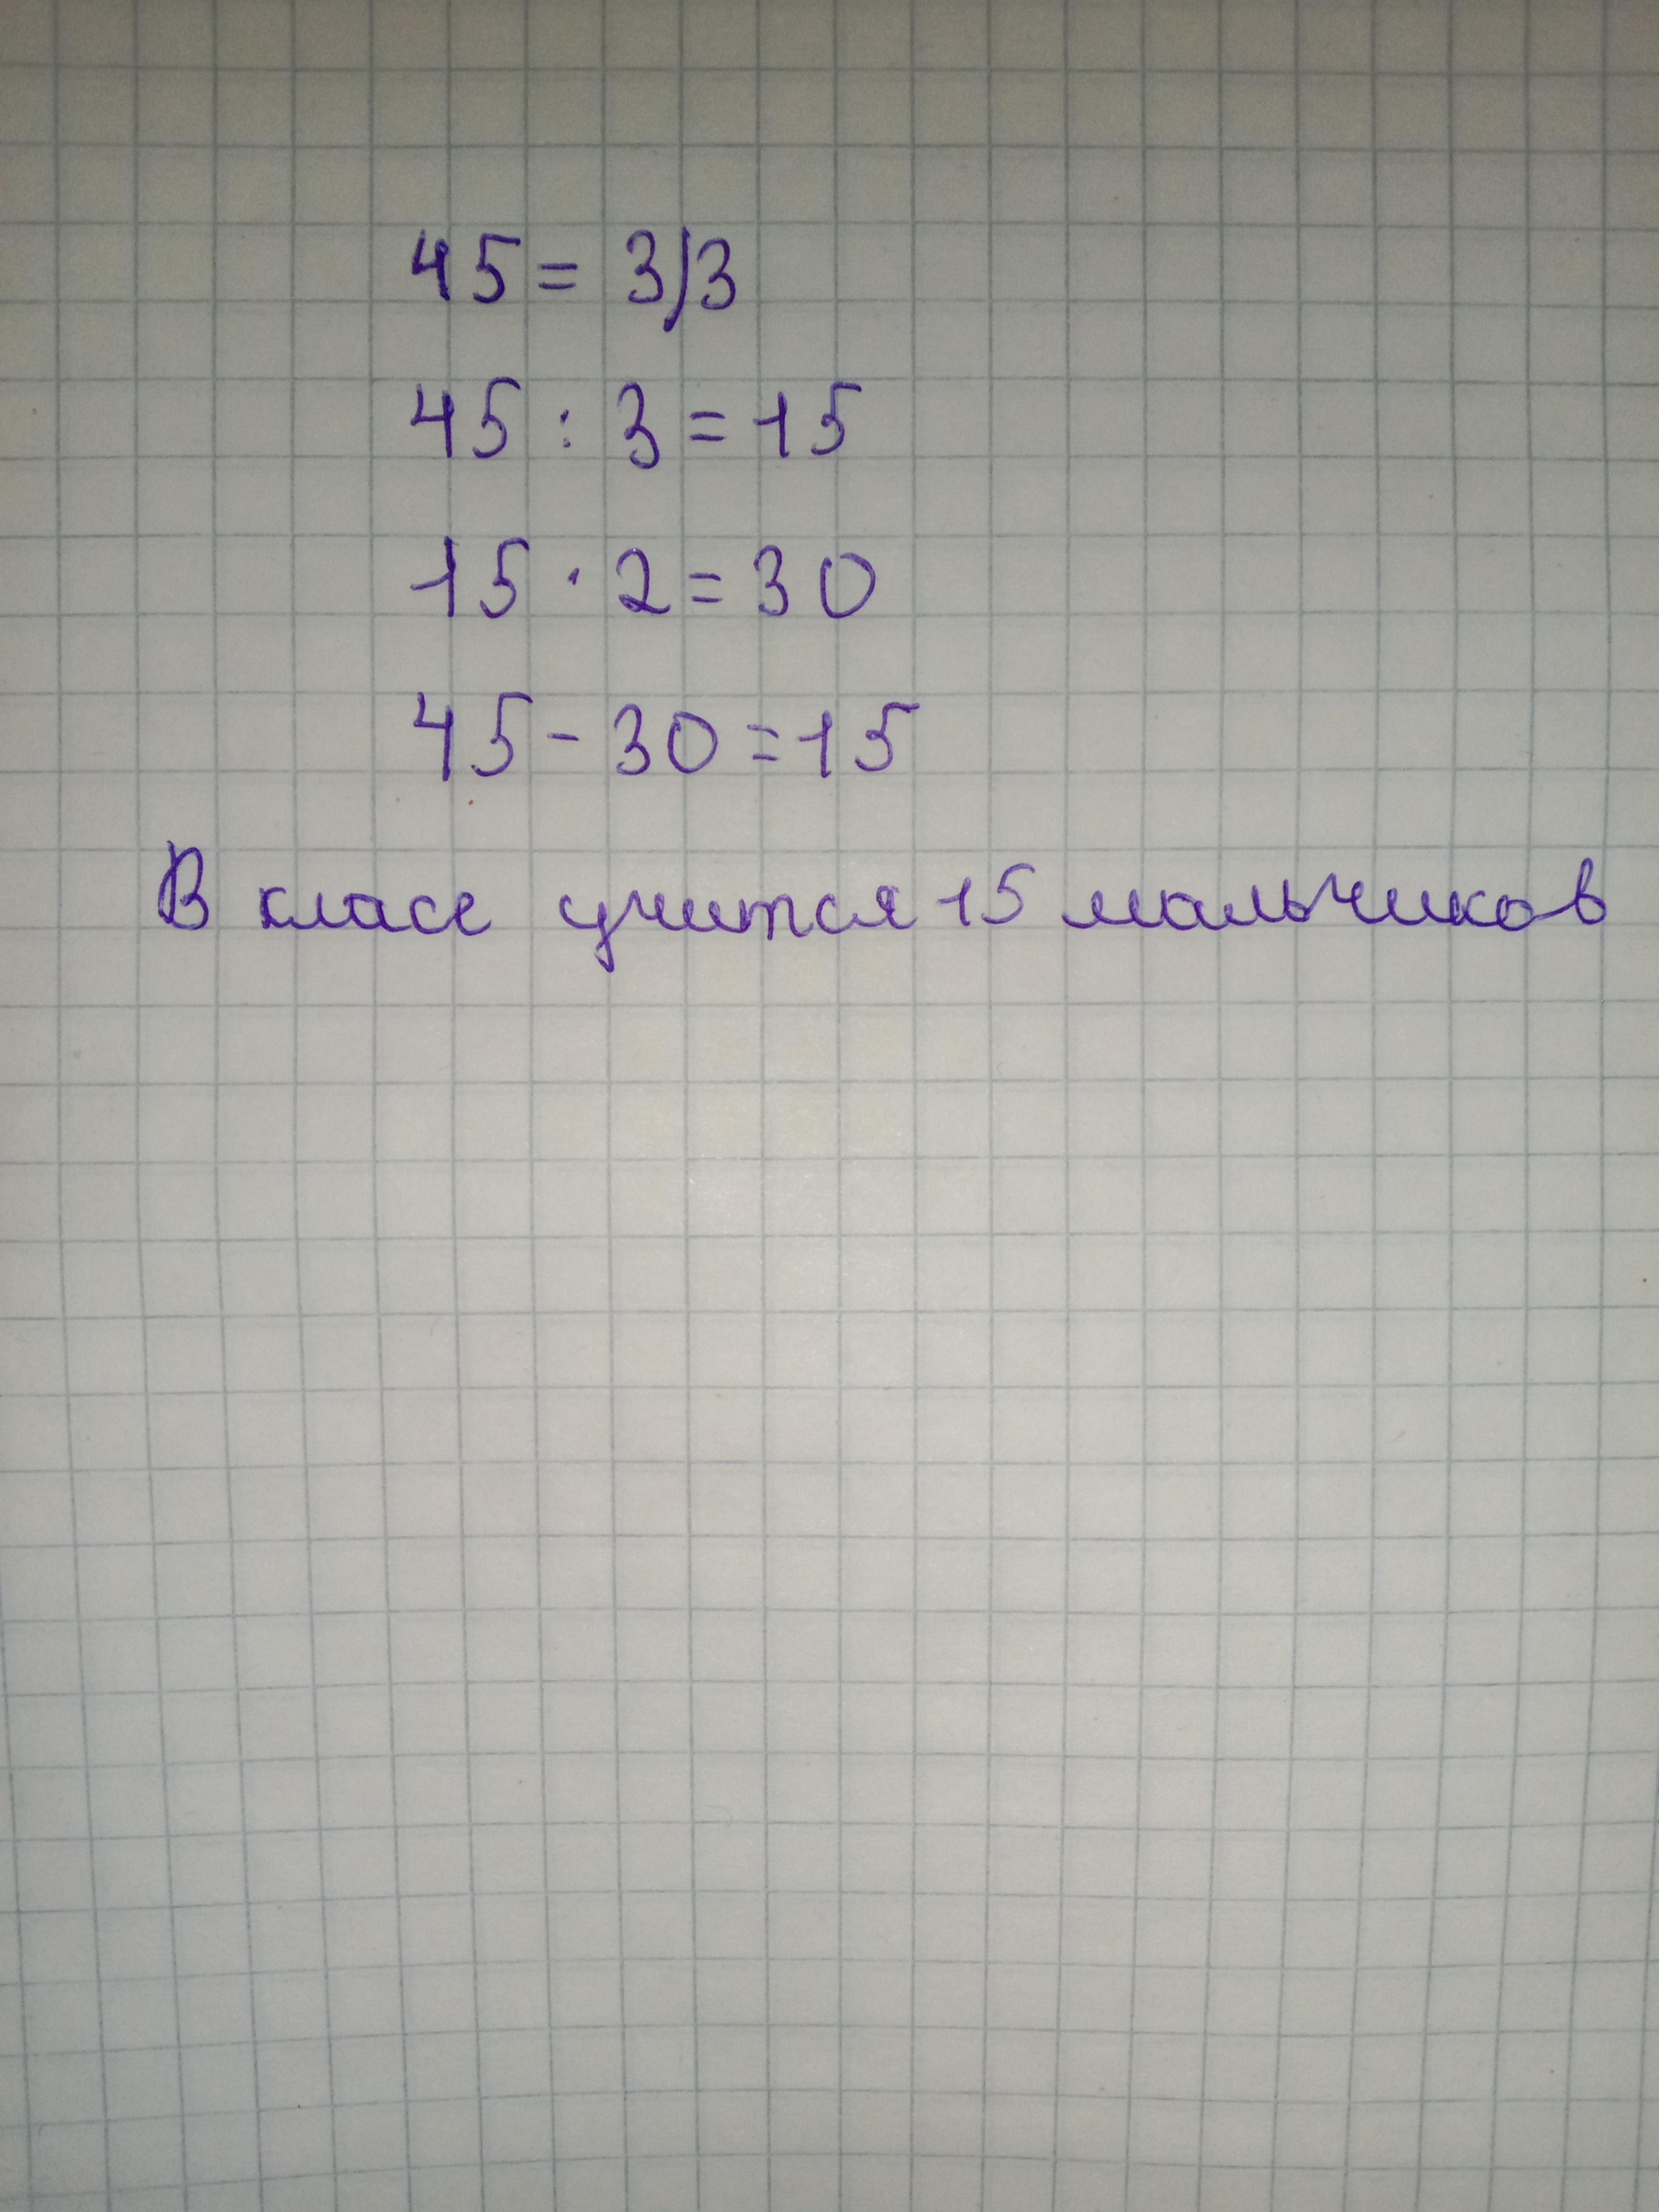 45 = 3/3
45 : 3 = 15
15 · 2 = 30
45 - 30 = 15
В класе учится 15 мальчиков